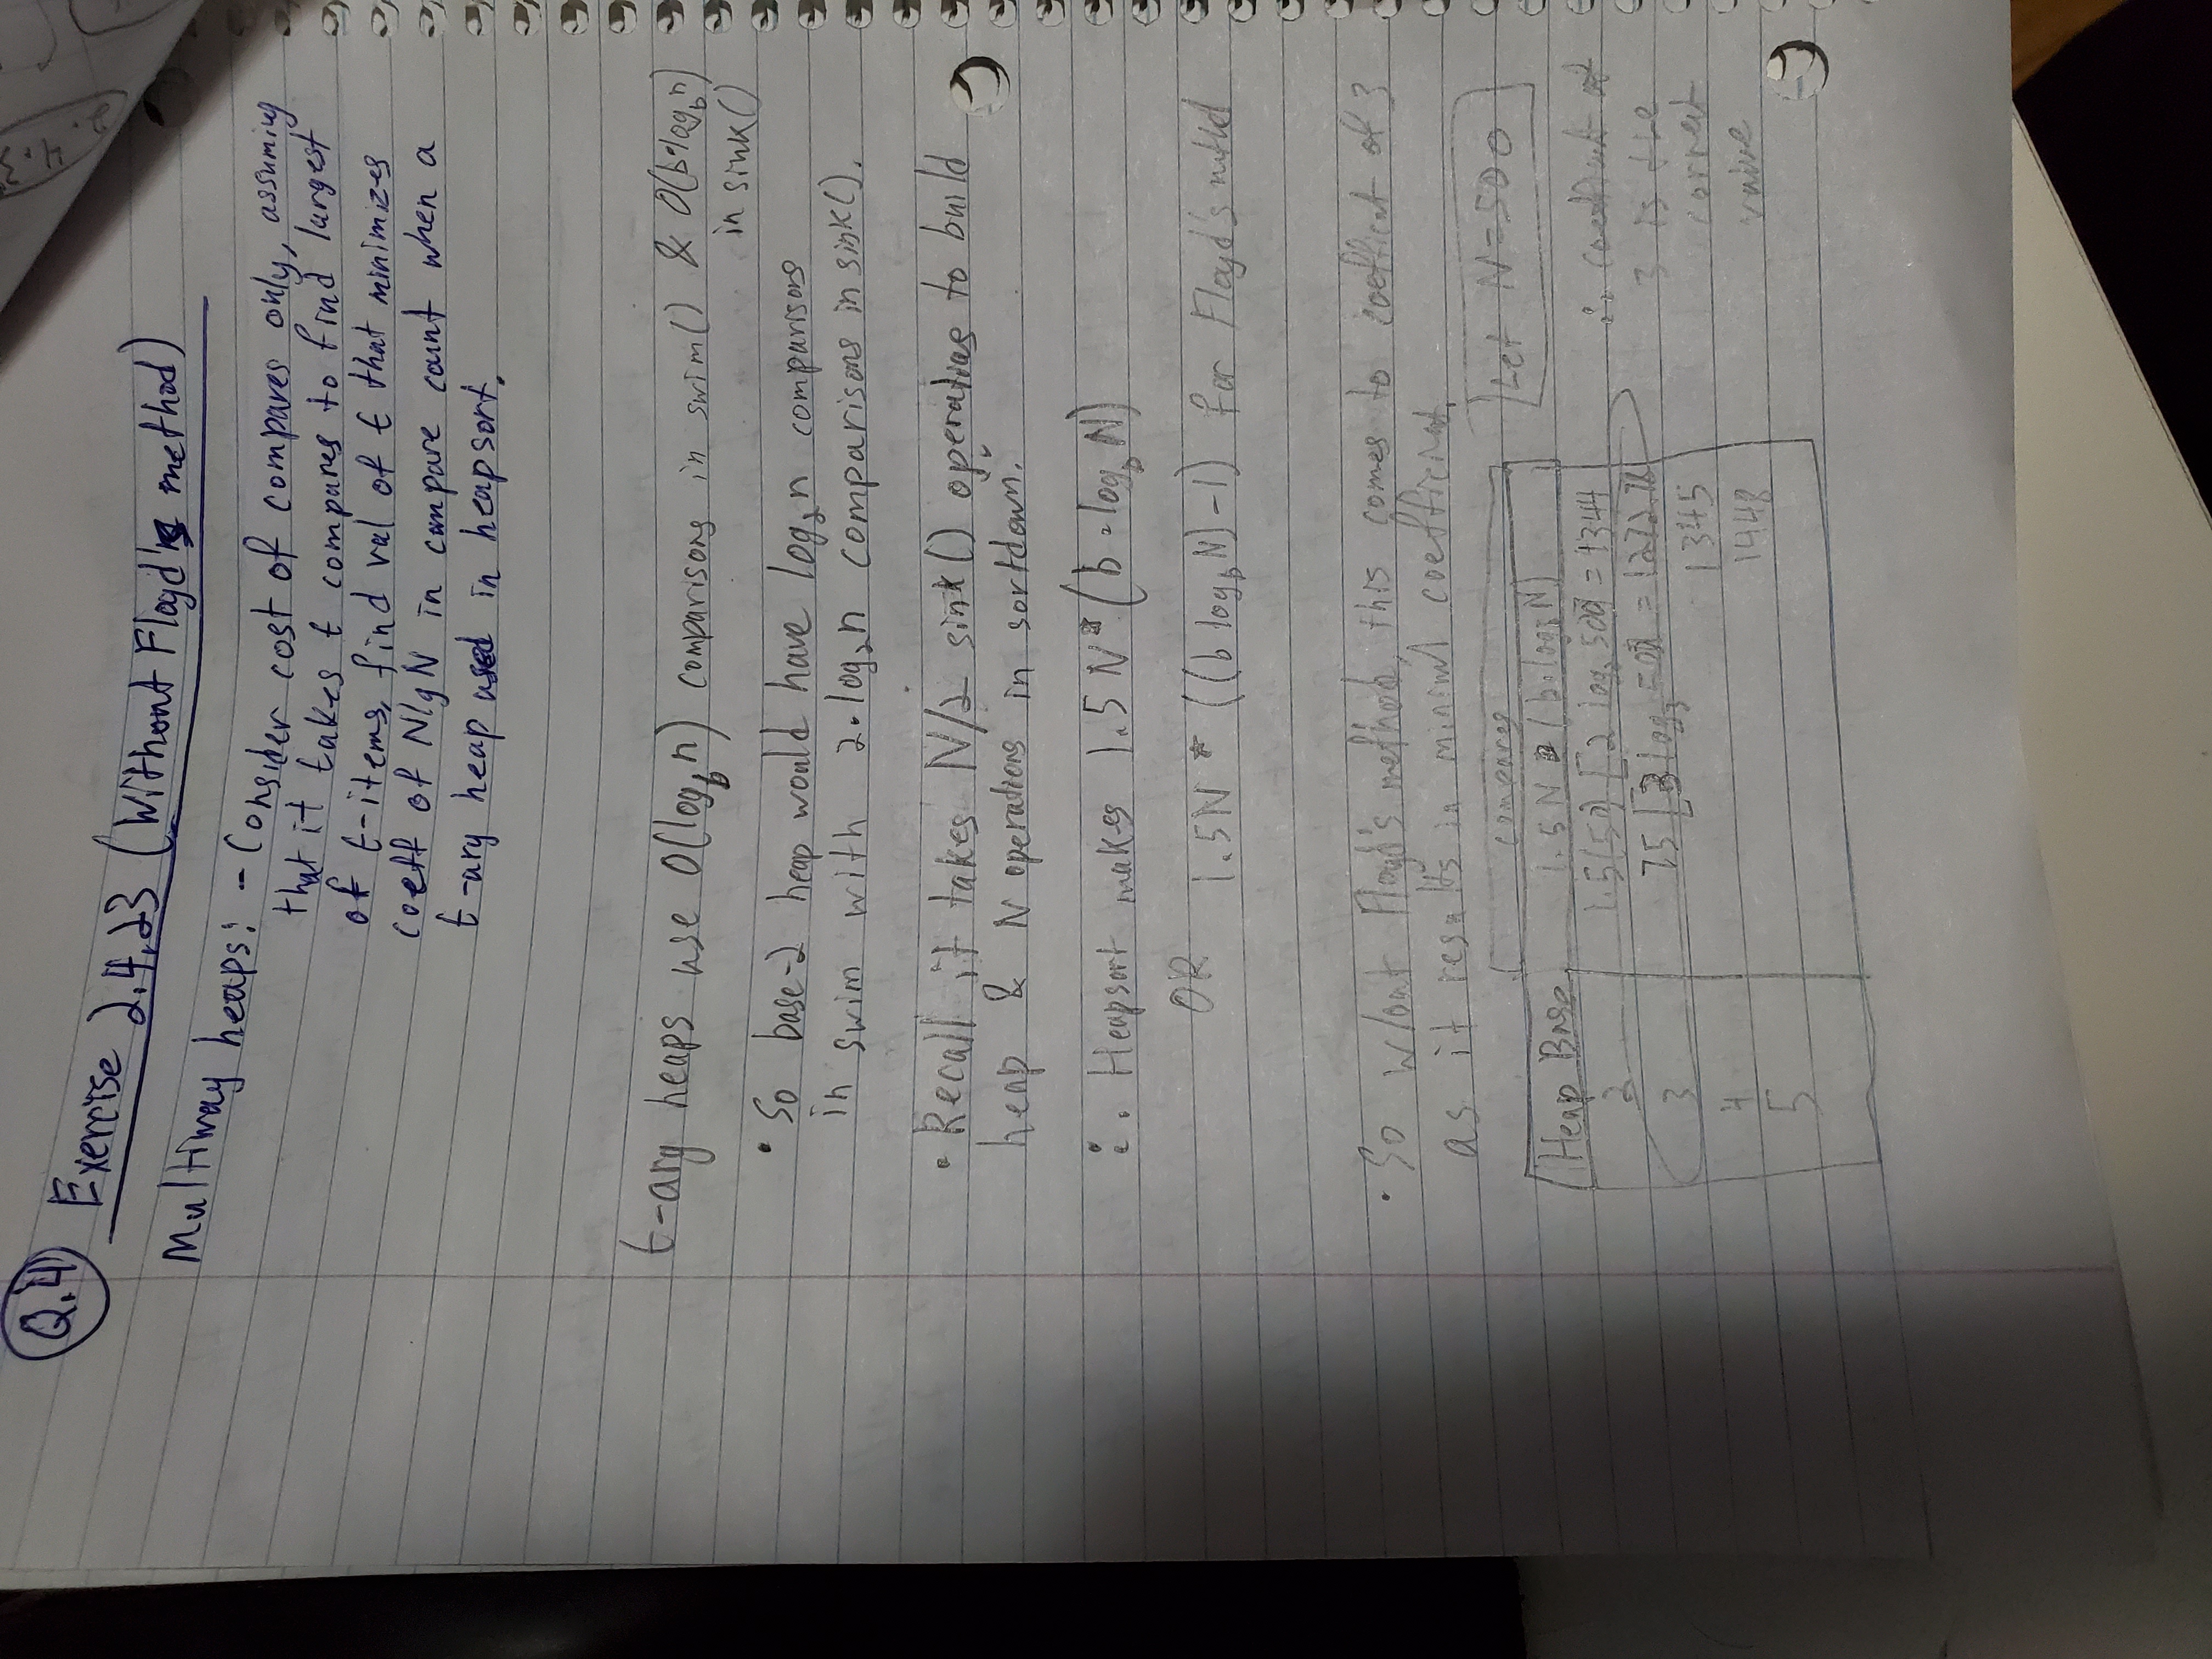 Q.4
Exercise 2.4.23 (Without Floyd's method)
Multiway heaps: - Consider cost of compares only, assuming
that it takes t compares to find largest
of t-items, find val of t that minimizes
coeff of NlgN in compare count when a
t-ary heap used in heapsort.
t-ary heaps use O(log_b n) comparisons in swim() & O(b·log_b n)
in sink()
• So base-2 heap would have log₂n comparisons
in swim with 2·log₂n comparisons in sink().
• Recall it takes N/2 sink() operations to build
heap & N operations in sortdown.
∴ Heapsort makes 1.5 N * (b·log_b N)
OR 1.5N * ((b log_b N)-1) for Floyd's
• So w/out Floyd's method, this comes to coefficient of 3
as it results in minimal coefficient.
compares
Let N=500
Heap Base 1.5 N * (b·log_b N)
2 1.5(50) [2 log₂ 500] = 1344
3 75 [3 log₃ 500] = 1272.78
4 1345
5 1448
∴ coefficient of
3 is the
correct
value